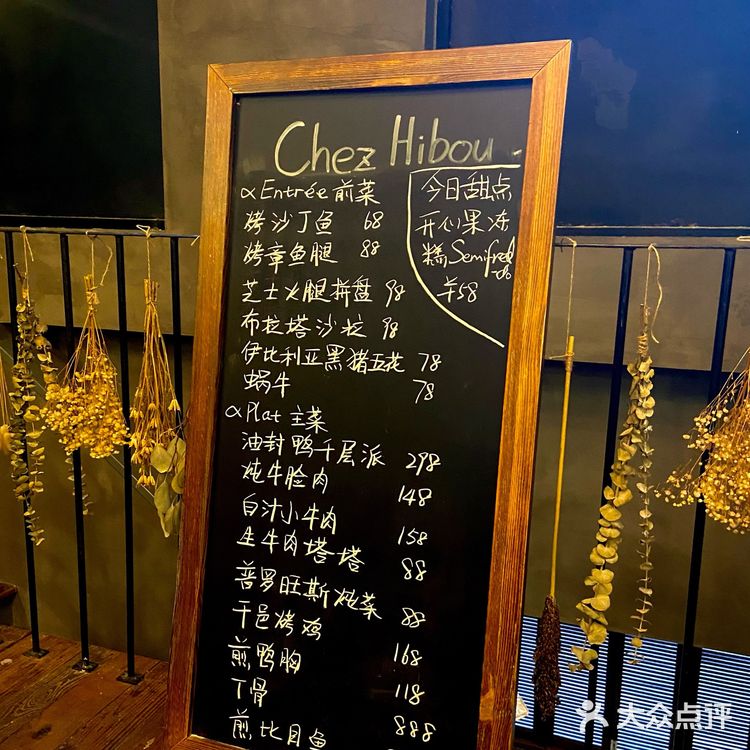 Chez Hibou
αEntrée 前菜
烤沙丁鱼 68
烤章鱼腿 88
芝士火腿拼盘 98
布拉塔沙拉 98
伊比利亚黑猪五花 78
蜗牛 78
αPlat 主菜
油封鸭千层派 298
炖牛脸肉 148
白汁小牛肉 158
生牛肉塔塔 88
普罗旺斯炖菜 88
干邑烤鸡 168
煎鸭胸 118
丁骨 888
煎比目鱼
今日甜点
开心果冻
糕Semifred
-do
¥58
大众点评